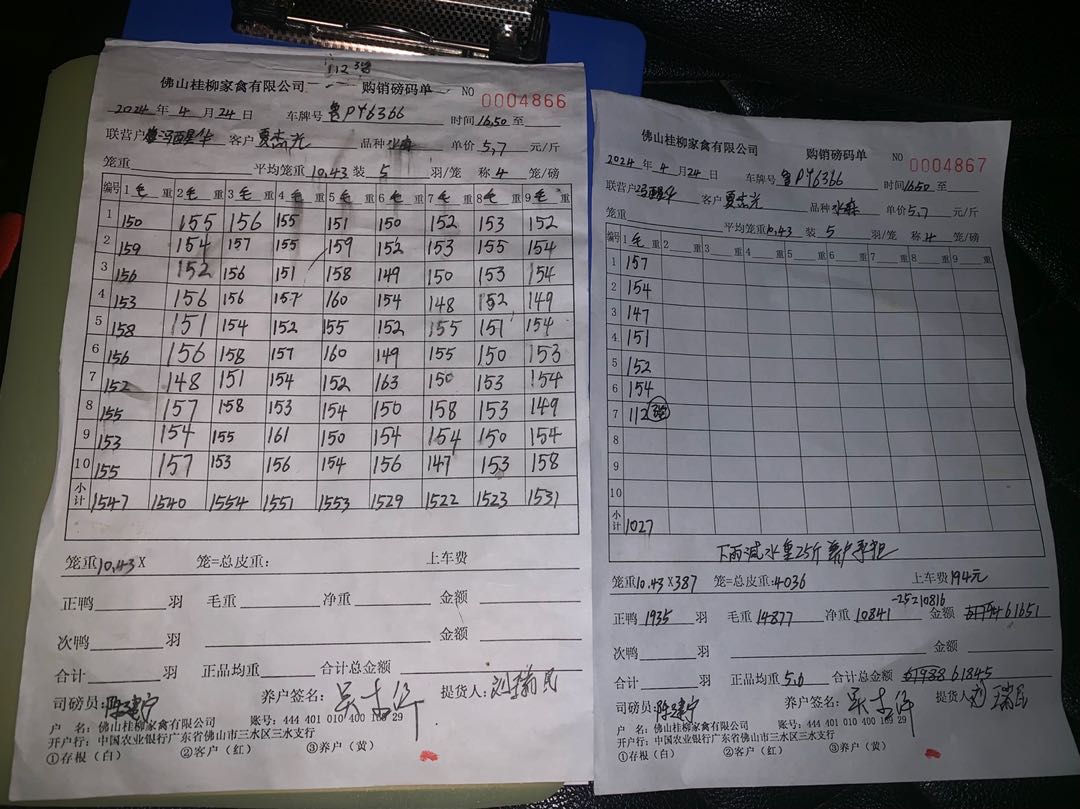 112 3笼
佛山桂柳家禽有限公司 购销磅码单 NO 0004866
2024年4月24日 车牌号鲁PY6366 时间16.50至
联营户冯西星华 客户夏志光 品种水麻 单价5,7元/斤
笼重 平均笼重10,43装5羽/笼 称4笼/磅
编号 1毛重 2毛重 3毛重 4毛重 5毛重 6毛重 7毛重 8毛重 9毛重
1 150 155 156 155 151 150 152 153 152
2 159 154 157 155 159 152 153 155 154
3 156 152 156 151 158 149 150 153 154
4 153 156 156 157 160 154 148 152 149
5 158 151 154 152 155 152 155 151 154
6 156 156 158 157 160 149 155 150 153
7 152 148 151 154 152 163 150 153 154
8 155 157 158 153 154 150 158 153 149
9 153 154 155 161 150 154 154 150 154
10 155 157 153 156 154 156 147 153 158
小计 1547 1540 1554 1551 1553 1529 1522 1523 1531
笼重10,43X 笼=总皮重: 上车费
正鸭 羽 毛重 净重 金额
次鸭 羽 金额
合计 羽 正品均重 合计总金额
司磅员:陈建宁 养户签名: 提货人:刘瑞民
户 名:佛山桂柳家禽有限公司 账号:444 401 010 400 169 29
开户行:中国农业银行广东省佛山市三水区三水支行
①存根(白) ②客户(红) ③养户(黄)
佛山桂柳家禽有限公司 购销磅码单 NO 0004867
2024年4月24日 车牌号鲁PY6366 时间16.50至
联营户冯西星华 客户夏志光 品种水麻 单价5,7元/斤
笼重 平均笼重10,43装5羽/笼 称4笼/磅
编号 1毛重 2重 3重 4重 5重 6重 7重 8重 9重
1 157
2 154
3 147
4 151
5 152
6 154
7 112 3笼
8
9
10
小计 1027
下雨减水重25斤 养户承担
笼重10.43X387 笼=总皮重:4036 上车费194元
正鸭1935羽 毛重14877 净重10841-25=10816 金额61651
次鸭 羽 金额
合计 羽 正品均重5.6 合计总金额61845
司磅员:陈建宁 养户签名: 提货人:刘瑞民
户 名:佛山桂柳家禽有限公司 账号:444 401 010 400 169 29
开户行:中国农业银行广东省佛山市三水区三水支行
①存根(白) ②客户(红) ③养户(黄)